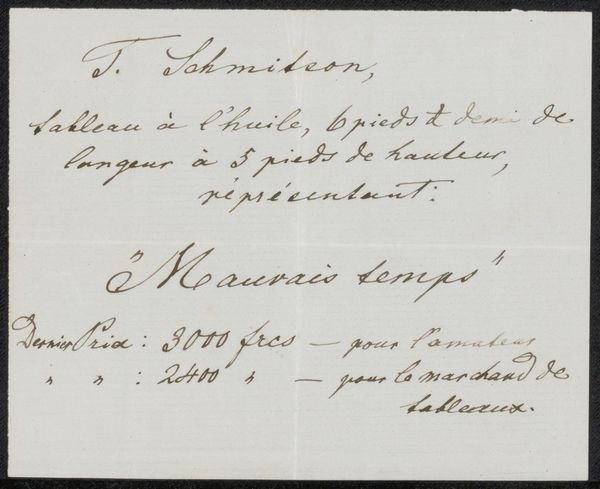 T. Schmitson,
tableau à l'huile, 6 pieds & demi de
longeur à 5 pieds de hauteur,
réprésentant:
"Mauvais temps"
Dernier Prix : 3000 frcs — pour l'amateur
" " : 2400 " — pour le marchand de
tableaux.